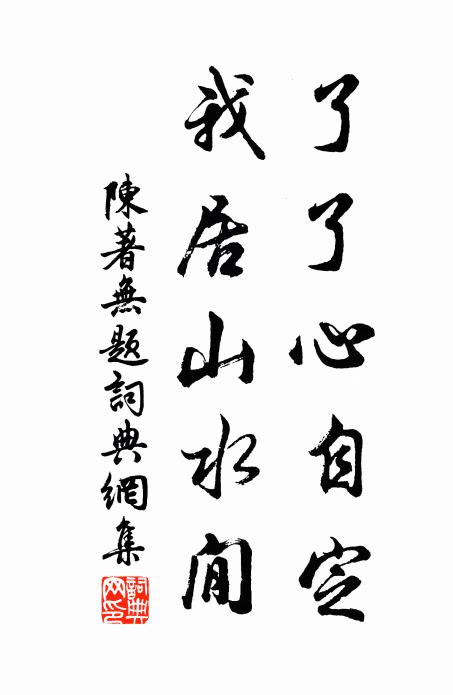 了了心自定
我居山水間
陳著無題詞典網集
詞典网印